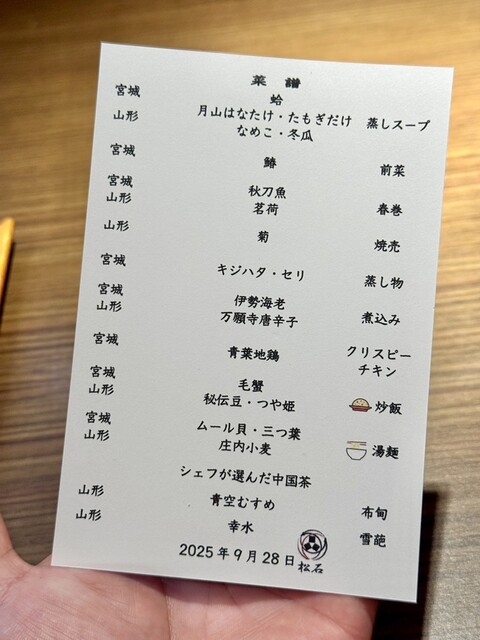 菜譜
宮城 蛤
山形 月山はなたけ・たもぎだけ 蒸しスープ
なめこ・冬瓜
宮城 鰆 前菜
宮城 秋刀魚
山形 茗荷 春巻
山形 菊 焼売
宮城 キジハタ・セリ 蒸し物
宮城 伊勢海老
山形 万願寺唐辛子 煮込み
宮城 青葉地鶏 クリスピー
チキン
宮城 毛蟹
山形 秘伝豆・つや姫 炒飯
宮城 ムール貝・三つ葉
山形 庄内小麦 湯麺
シェフが選んだ中国茶
山形 青空むすめ 布甸
山形 幸水 雪葩
2025年9月28日 松石